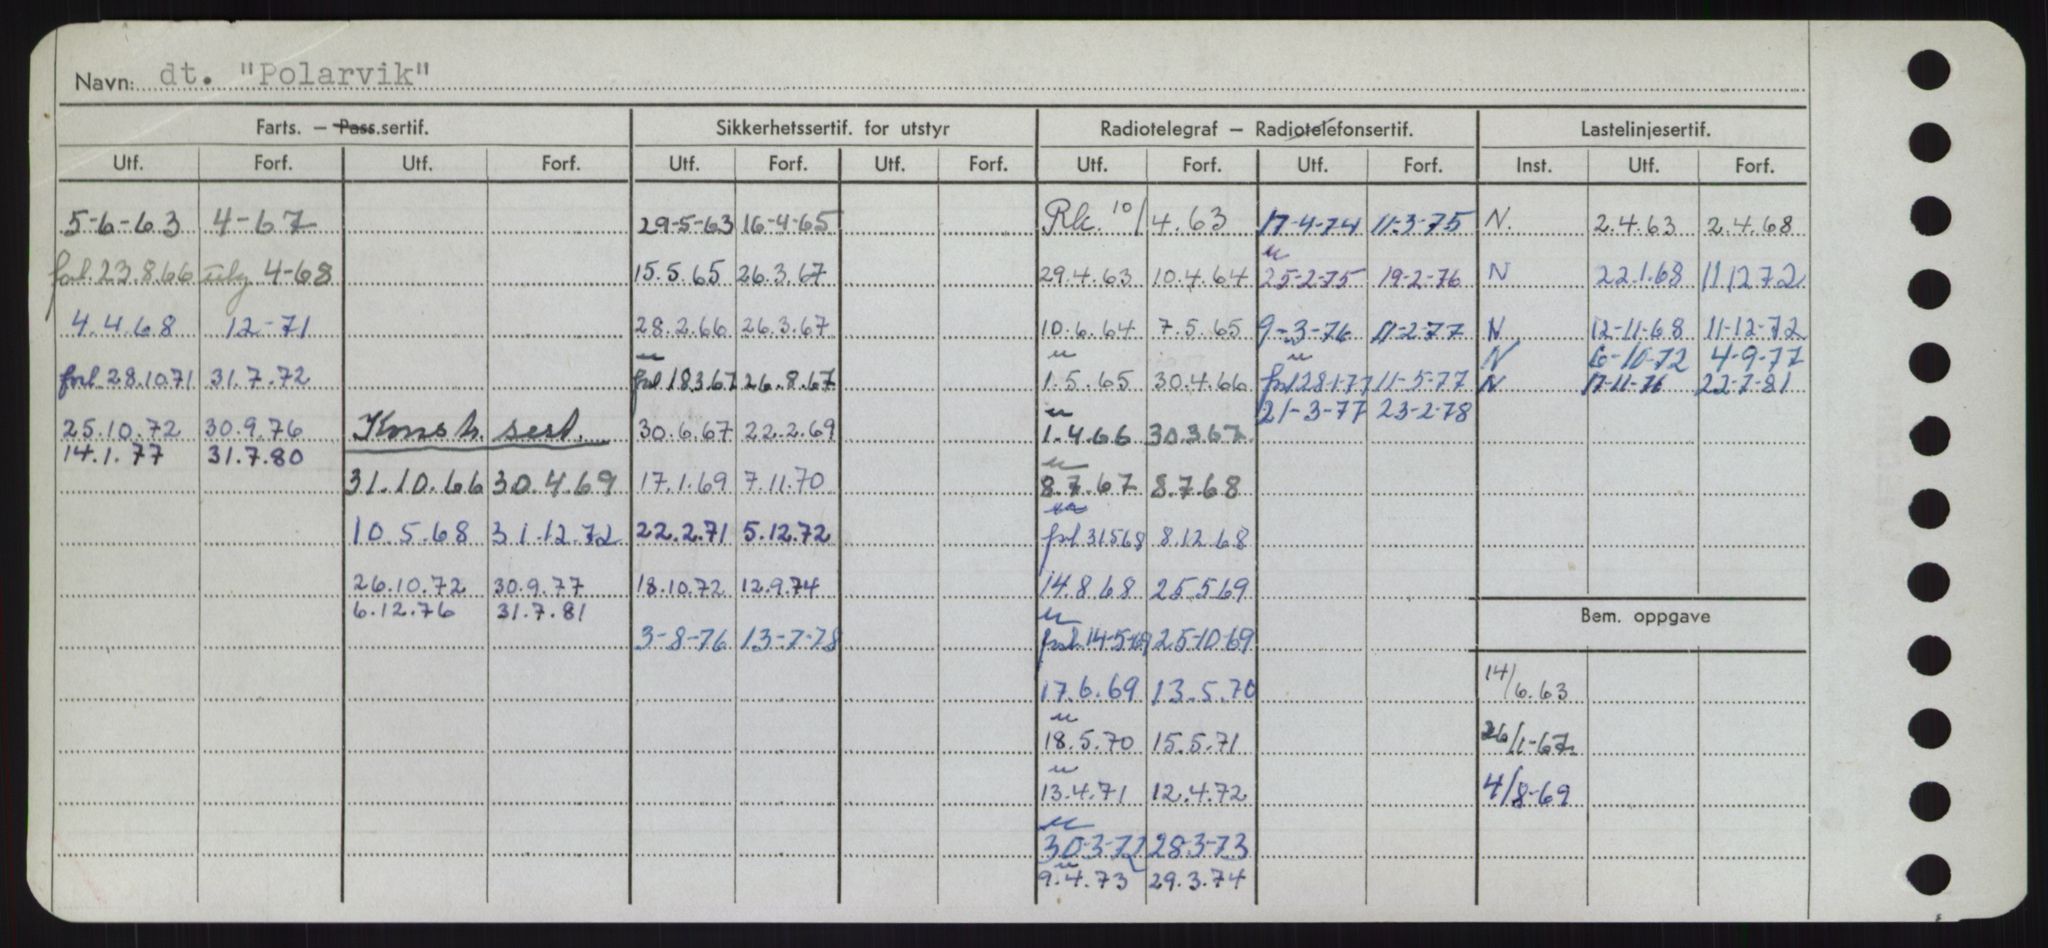 Navn: dt. "Polarvik"
Farts. — Pass.sertif. Sikkerhetssertif. for utstyr Radiotelegraf — Radiotelefonsertif. Lastelinjesertif.
Utf. Forf. Utf. Forf. Utf. Forf. Utf. Forf. Utf. Forf. Utf. Forf. Inst. Utf. Forf.
5-6-63 4-67 29-5-63 16-4-65 Rk. 10/4.63 17-4-74 11-3-75 N. 2.4.63 2.4.68
forl. 23.8.66 4-68 15.5.65 26.3.67 29.4.63 10.4.64 25-2-75 19-2-76 N 22.1.68 11 12 72
4.4.68 12-71 28.2.66 26.3.67 10.6.64 7.5.65 9-3-76 11-2-77 N 12-11-68 11-12-72
N 6-10-72 4-9-77
forl. 28.10.71 31.7.72 forl 18.3.67 26.8.67 1.5.65 30.4.66 forl 28-1-77 11-5-77 N 17-11-76 22-7-81
21-3-77 23-2-78
25.10.72 30.9.76 Konstr. sert. 30.6.67 22.2.69 1.4.66 30.3.67
14.1.77 31.7.80
31.10.66 30.4.69 17.1.69 7.11.70 8.7.67 8.7.68
10.5.68 31.12.72 22.2.71 5.12.72 forl 31568 8.12.68
26.10.72 30.9.77 18.10.72 12.9.74 14.8.68 25.5.69
6.12.76 31.7.81
Bem. oppgave
3-8-76 13-7-78 forl. 14-5-69 25-10-69
17.6.69 13.5.70 14/6.63
18.5.70 15.5.71 26/1-67
13.4.71 12.4.72 4/8-69
30-3-72 28-3-73
9.4.73 29.3.74